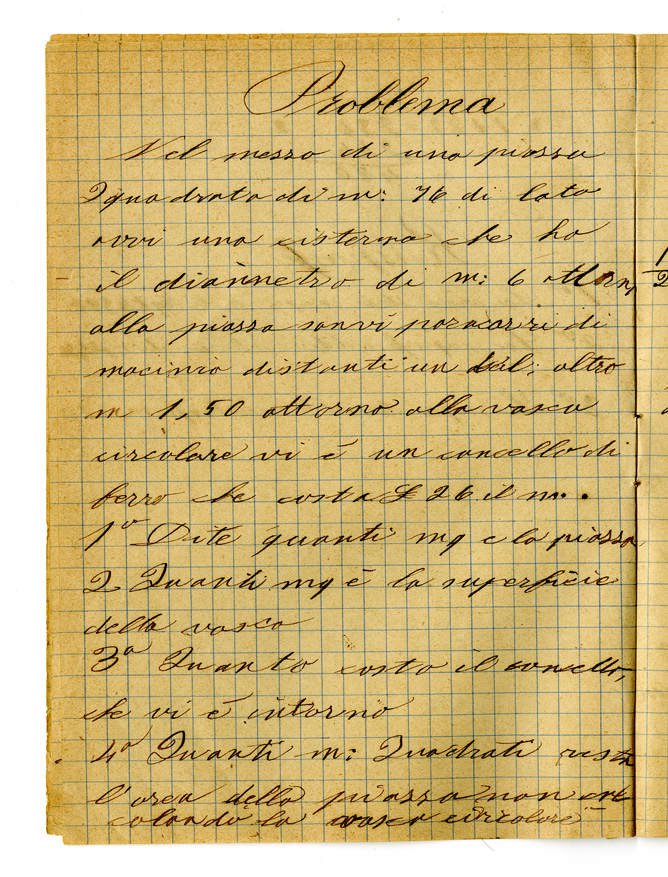 Problema
Nel mezzo di una piazza
Quadrata di m: 76 di lato
avvi una cisterna che ha
il diametro di m: 6 attorn
alla piazza sonvi paracarri di
macinio distanti un dal; altro
m 1,50 attorno alla vasca
circolare vi é un cancello di
ferro che costa £ 26 il m. .
1º Dite quanti mq e la piazza
2 Quanti mq é la superficie
della vasca
3ª Quanto costa il cancello,
che vi é intorno
4ª Quanti m: Quadrati resta
l'area della piazza non
colando la vasca circolare
1
2